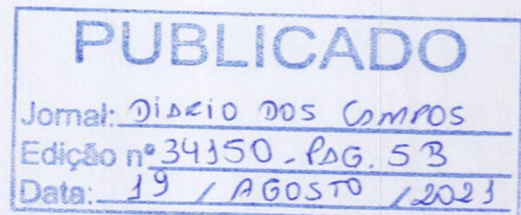 PUBLICADO
Jornal: DIÁRIO DOS CAMPOS
Edição nº 34150 - PÁG. 5B
Data: 19 / AGOSTO / 2021